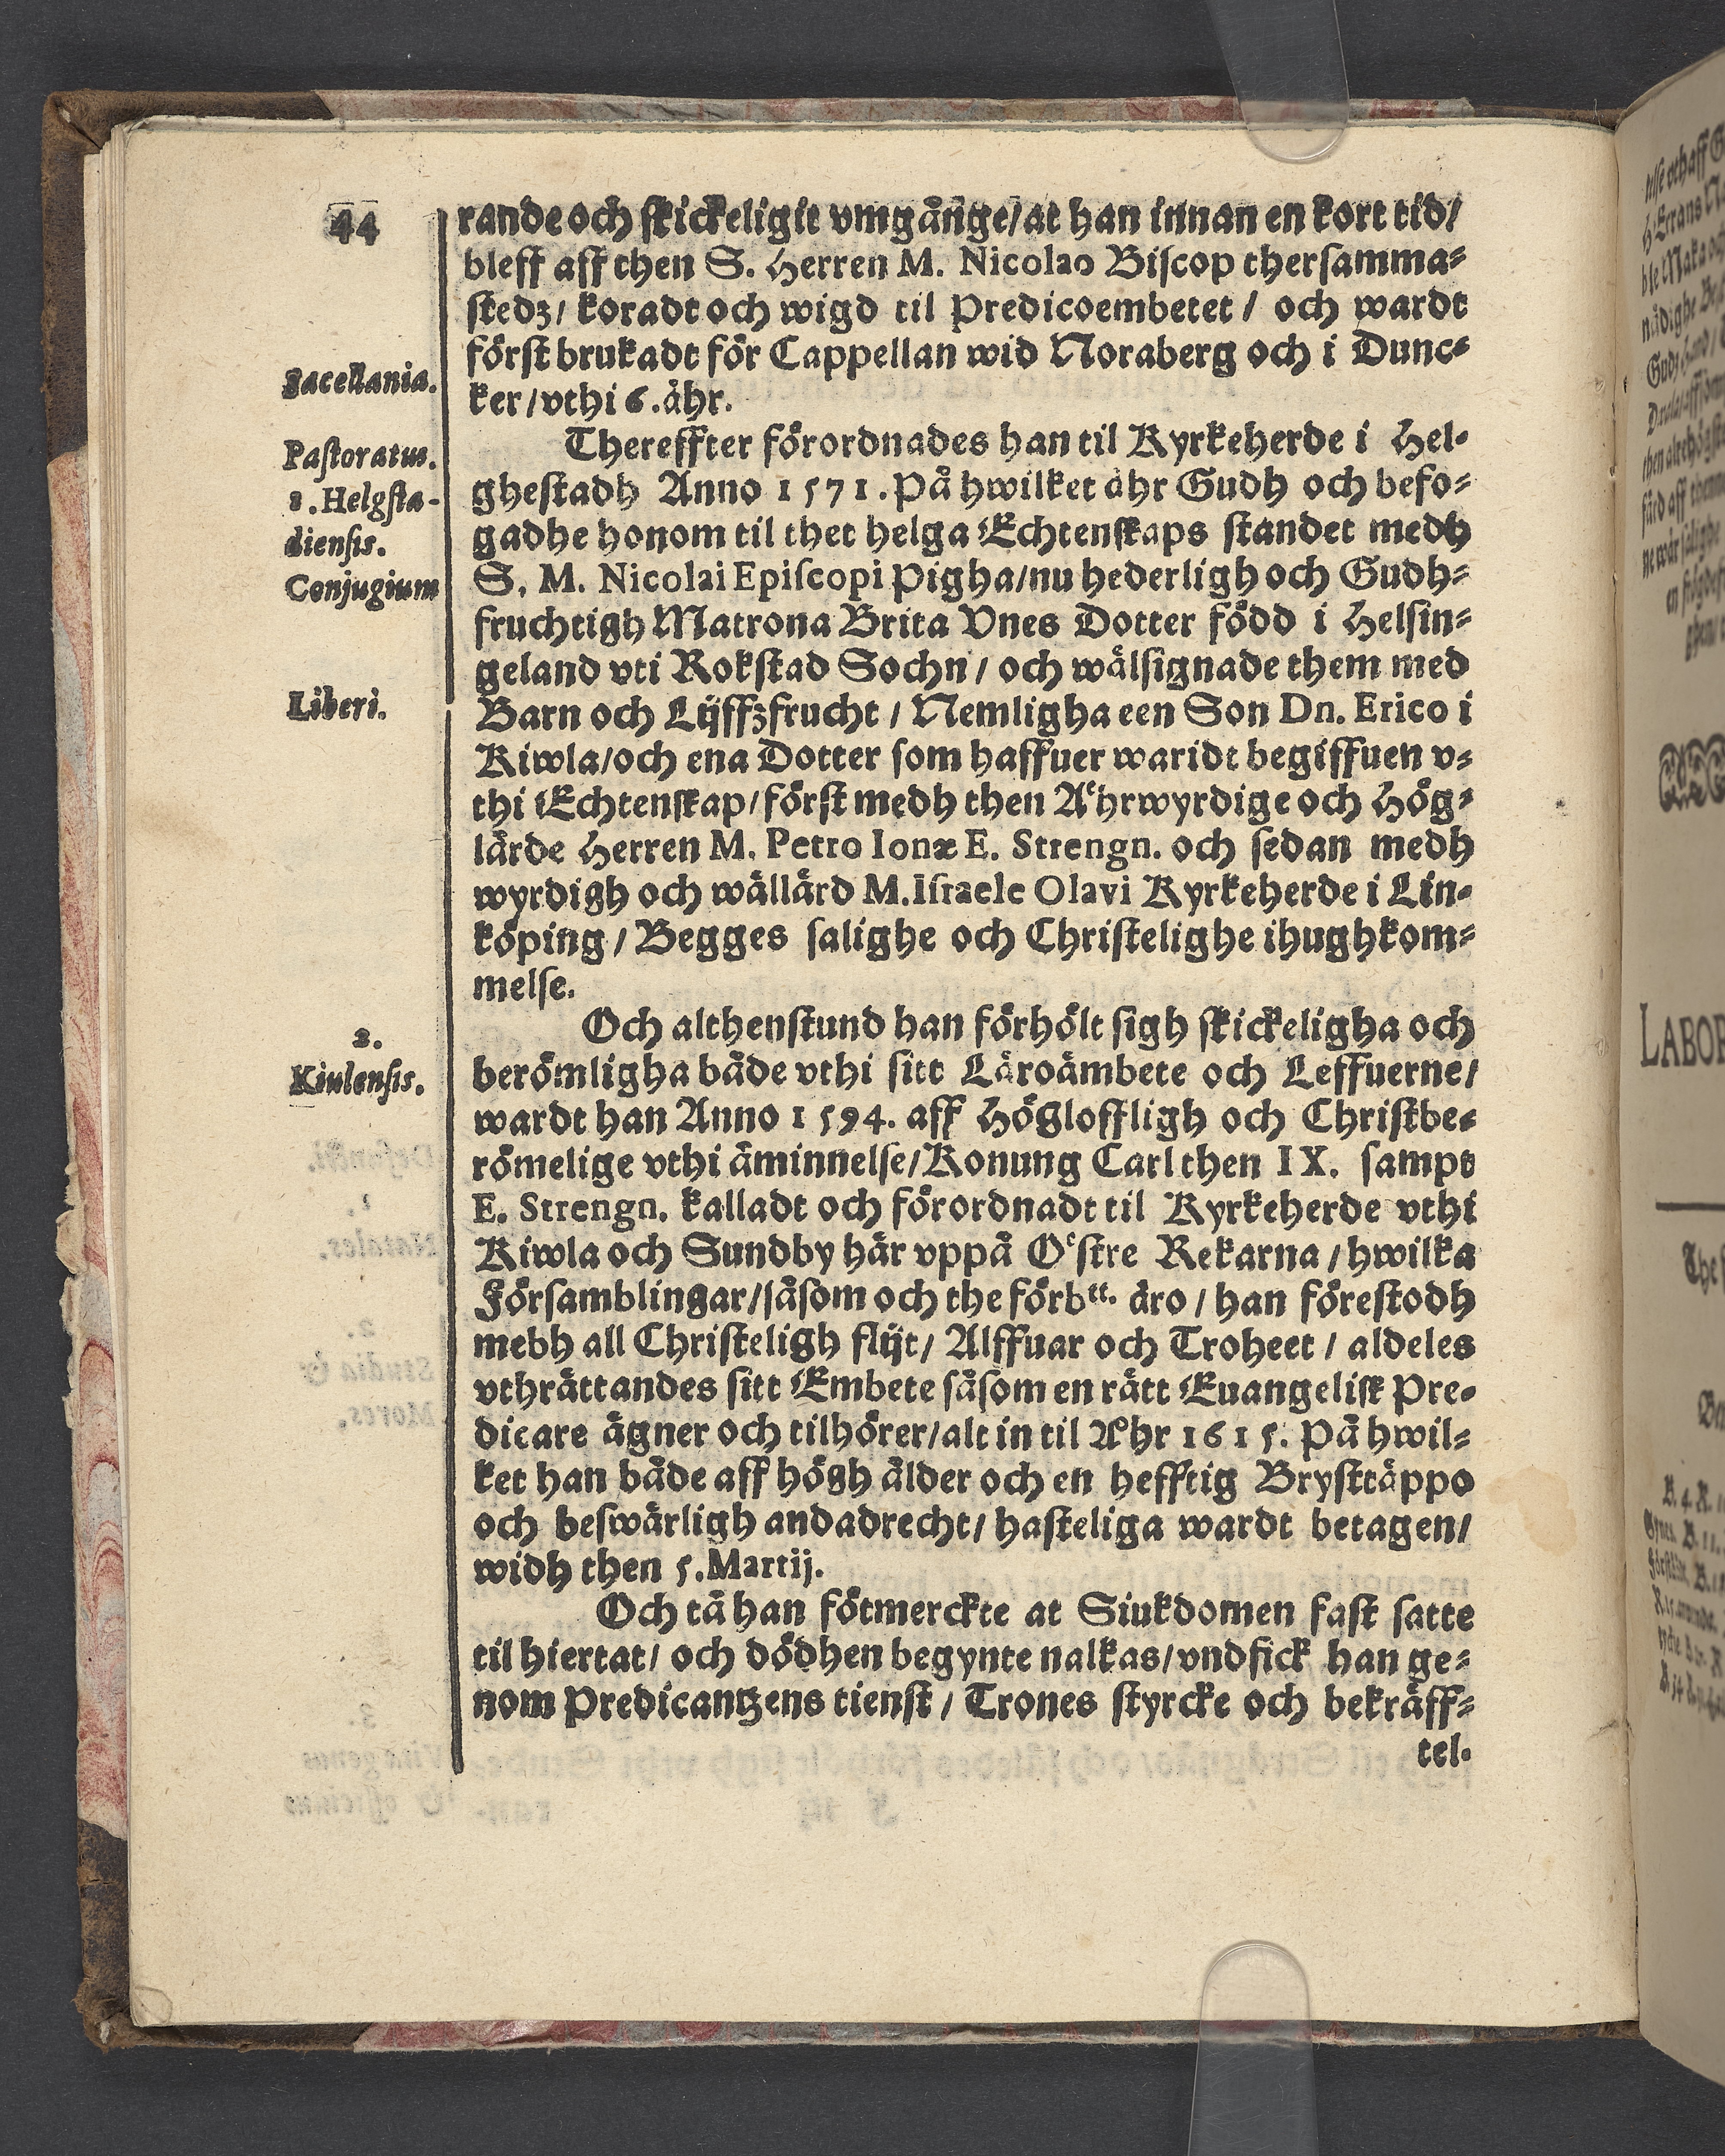 44
rande och skickeligit vmgånge/at han innan en kort tid/
bleff aff then S. Herren M. Nicolao Biscop thersamma-
stedz/ koradt och wigd til Predicoembetet / och wardt
först brukadt för Cappellan wid Noraberg och i Dunc-
Sacellania.
ker/vthi 6.åhr.
Thereffter förordnades han til Kyrkeherde i Hel-
Pastoratus.
ghestadh Anno 1571. På hwilket åhr Gudh och befo-
1. Helgsta-
gadhe honom til thet helga Echtenskaps standet medh
diensis.
S. M. Nicolai Episcopi Pigha/nu hederligh och Gudh-
Conjugium
fruchtigh Matrona Brita Vnes Dotter född i Helsin-
geland vti Rokstad Sochn / och wälsignade them med
Liberi.
Barn och Lijffzfrucht / Nemligha een Son Dn. Erico i
Kiwla/och ena Dotter som haffuer waridt begiffuen v-
thi Echtenskap/först medh then Aͤhrwyrdige och Hög-
lärde Herren M. Petro Ionæ E. Strengn. och sedan medh
wyrdigh och wällärd M. Israele Olavi Kyrkeherde i Lin-
köping / Begges salighe och Christelighe ihughkom-
melse.
Och althenstund han förhölt sigh skickeligha och
2.
berömligha både vthi sitt Läroämbete och Leffuerne/
Kiulensis.
wardt han Anno 1594. aff Högloffligh och Christbe-
römelige vthi åminnelse/Konung Carl then IX. sampt
E. Strengn. kalladt och förordnadt til Kyrkeherde vthi
Kiwla och Sundby här vppå Oͤstre Rekarna / hwilka
Församblingar/såsom och the förbᵗᵗ. äro / han förestodh
mebh all Christeligh flijt/ Alffuar och Troheet / aldeles
vthrättandes sitt Embete såsom en rätt Euangelisk Pre-
dicare ägner och tilhörer/alt in til Åhr 1615. På hwil-
ket han både aff högh ålder och en hefftig Brysttäppo
och beswärligh andadrecht/ hasteliga wardt betagen/
widh then 5. Martij.
Och tå han fötmerckte at Siukdomen fast satte
til hiertat/ och dödhen begynte nalkas/vndfick han ge-
nom Predicantzens tienst / Trones styrcke och bekräff-
tel-